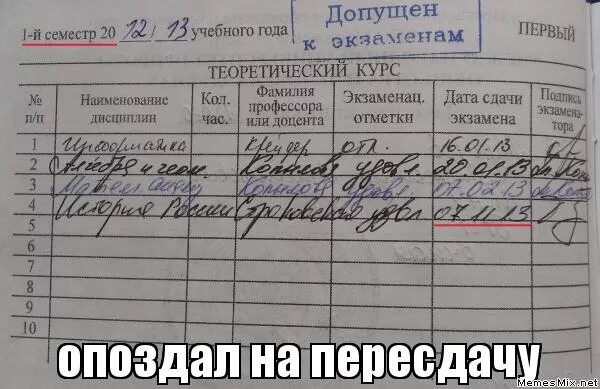 1-й семестр 20 12 / 13 учебного года
Допущен
к экзаменам
ПЕРВЫЙ
ТЕОРЕТИЧЕСКИЙ КУРС
№ п/п Наименование дисциплин Кол. час. Фамилия профессора или доцента Экзаменац. отметки Дата сдачи экзамена Подпись экзамена-тора
1 Информатика Крейдер отл. 16.01.13
2 Алгебра и геом. Копылова удовл. 20.01.13
3 Копылова удовл. 07.02.13
4 История России удовл 07.11.13
5
6
7
8
9
10
опоздал на пересдачу
MemesMix.net